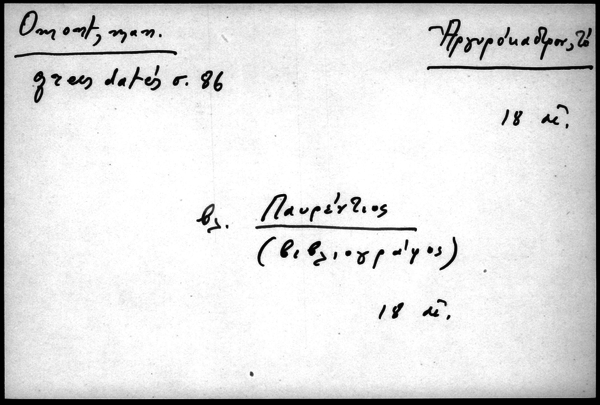 Omont, man.
grecs datés σ. 86
Ἀργυρόκαστρον, τό
18 αἰ.
βλ. Λαυρέντιος
(βιβλιογράφος)
18 αἰ.